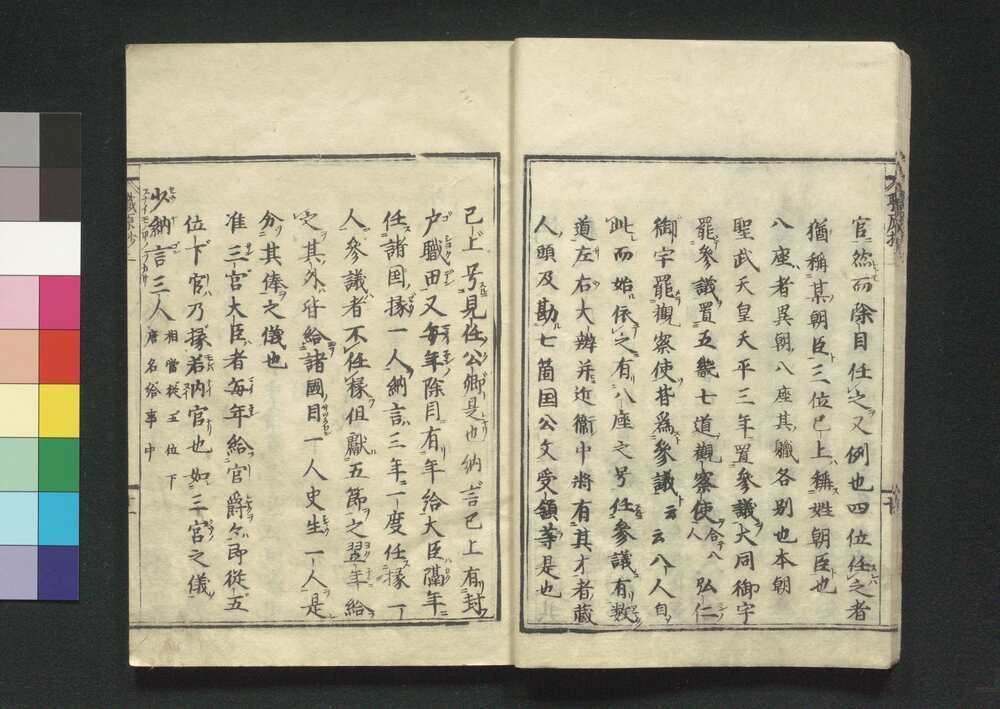 官然而除目任之又例也四位任之者
猶稱某朝臣三位已上稱姓朝臣也
八座者異朝八座其職各別也本朝
聖武天皇天平三年置參議大同御宇
罷參議置五畿七道觀察使合八人弘仁
御宇罷觀察使替爲參議云云八人自
此而始依之有八座之号任參議有数
道左右大辨并近衞中將有其才者蔵
人頭及勘七箇国公文受領等是也
已上号見任公卿是也納言已上有封
户職田又毎年除目有年給大臣隔年
任諸国掾一人納言三年一度任掾一
人參議者不任掾但獻五節之翌年給
之其外皆給諸國目一人史生一人是
分其俸之儀也
准三宮大臣者毎年給官爵々即從五
位下官乃掾若内官也如三宮之儀
少納言三人
相當從五位下
唐名給事中